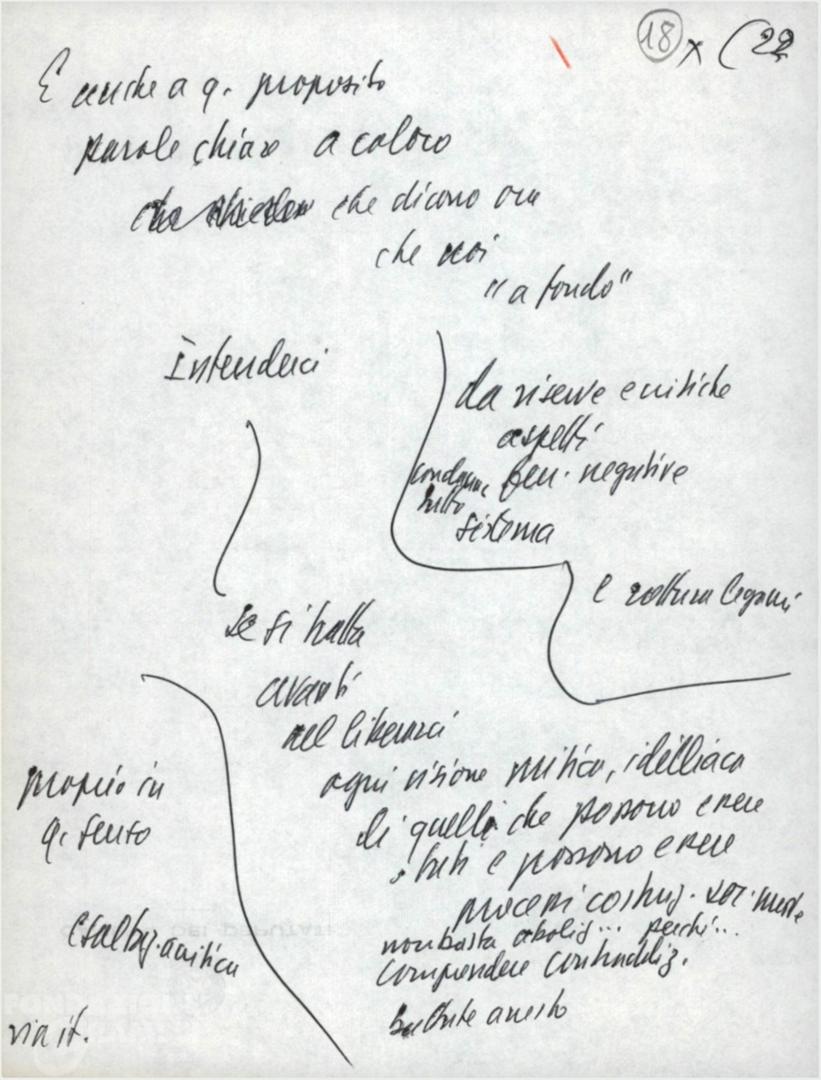 18 x (22
E anche a q. proposito
parole chiare a coloro
che che dicono ora
che noi
"a fondo"
Intenderci
da riserve e critiche
aspetti
condanna fen. negative
tutto
sistema
e rottura legami
se si tratta
avanti
nel liberarci
ogni visione mitica, idilliaca
di quelli che possono essere
stati e possono essere
processi costruz. soc.
non basta aboliz... perché...
comprendere contraddiz.
proprio in
q. senso
e altra critica
via it.